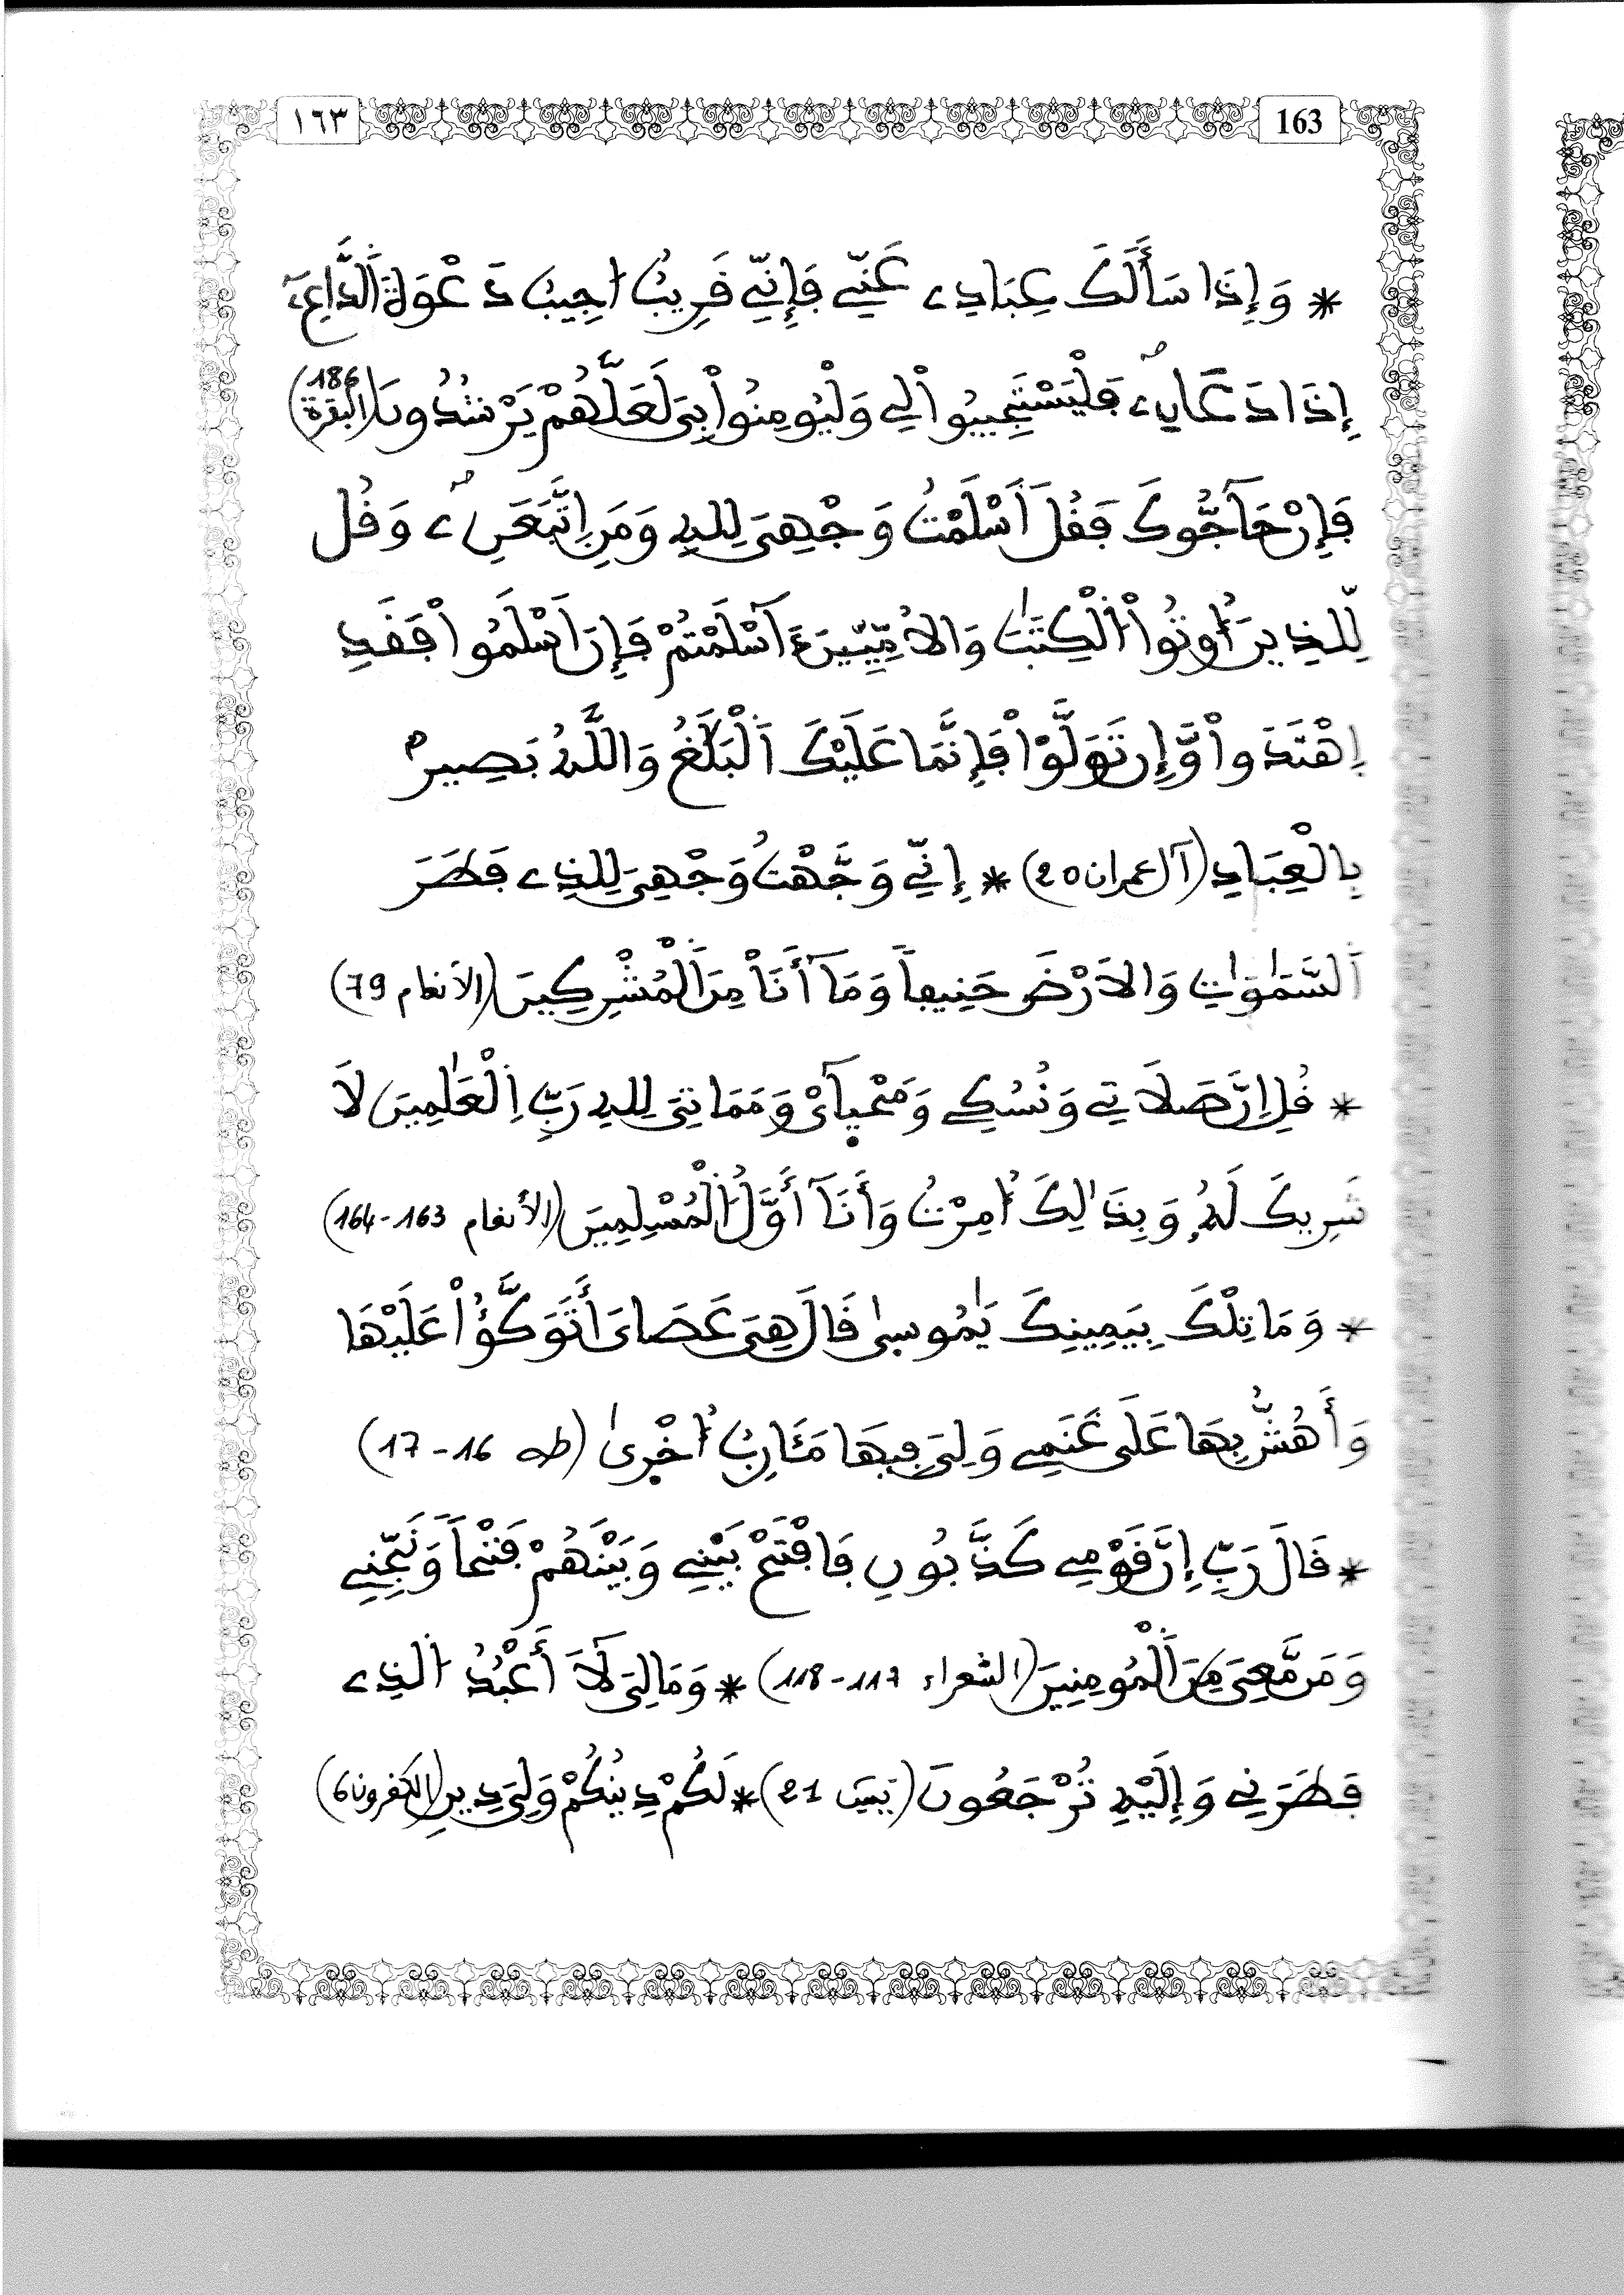 ١٦٣ 163
* وَإِذَا سَأَلَكَ عِبَادِے عَنِّے فَإِنِّے قَرِيبٌ ا۟جِيبُ دَعْوَةَ اَ۬لدَّاعِۦٓ
إِذَا دَعَانِۦ فَلْيَسْتَجِيبُواْ لِے وَلْيُومِنُواْ بِيَ لَعَلَّهُمْ يَرْشُدُونَ (البقرة 186)
فَإِنْ حَآجُّوكَ فَقُلَ اَسْلَمْتُ وَجْهِيَ لِلهِ وَمَنِ اِتَّبَعَنِۦ وَقُل
لِّلذِينَ أُوتُواْ اُ۬لْكِتَٰبَ وَالُامِّيِّينَ ءَآسْلَمْتُمْ فَإِنَ اَسْلَمُواْ فَقَدِ
اِهْتَدَواْ وَّإِن تَوَلَّوْاْ فَإِنَّمَا عَلَيْكَ اَ۬لْبَلَٰغُ وَاللَّهُ بَصِيرٌ
بِالْعِبَادِ (آل عمران 20) * إِنِّے وَجَّهْتُ وَجْهِيَ لِلذِے فَطَرَ
اَ۬لسَّمَٰوَٰتِ وَالَارْضَ حَنِيفاً وَمَآ أَنَاْ مِنَ اَ۬لْمُشْرِكِينَ (الأنعام 79)
* قُلِ اِنَّ صَلَاتِے وَنُسُكِے وَمَحْيآيْ وَمَمَاتِيَ لِلهِ رَبِّ اِ۬لْعَٰلَمِينَ لَا
شَرِيكَ لَهُۥ وَبِذَٰلِكَ أُمِرْتُ وَأَنَآ أَوَّلُ اُ۬لْمُسْلِمِينَ (الأنعام 163-164)
* وَمَا تِلْكَ بِيَمِينِكَ يَٰمُوسىٰ قَالَ هِيَ عَصَايَ أَتَوَكَّؤُاْ عَلَيْهَا
وَأَهُشُّ بِهَا عَلَى غَنَمِے وَلِيَ فِيهَا مَـَٔارِبُ أُخْرىٰ (طه 16-17)
* قَالَ رَبِّ إِنَّ قَوْمِے كَذَّبُونِ فَافْتَحْ بَيْنِے وَبَيْنَهُمْ فَتْحاً وَنَجِّنِے
وَمَن مَّعِيَ مِنَ اَ۬لْمُومِنِينَ (الشعراء 117-118) * وَمَا لِيَ لَآ أَعْبُدُ اُ۬لذِے
فَطَرَنِے وَإِلَيْهِ تُرْجَعُونَ (يس 21) * لَكُمْ دِينُكُمْ وَلِيَ دِينِ (الكفرون 6)